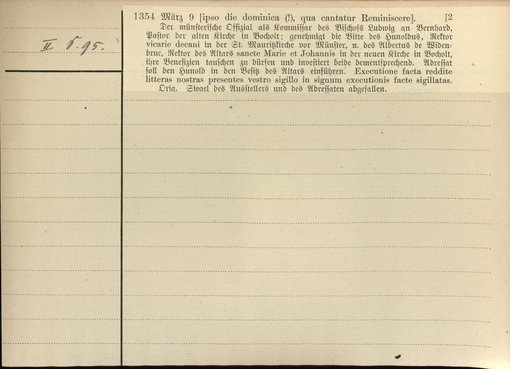 1354 März 9 [ipso die dominica (!), qua cantatur Reminiscere]. [2
Der münsterische Offizial als Kommissar des Bischofs Ludwig an Bernhard,
Pastor der alten Kirche in Bocholt: genehmigt die Bitte des Humoldus, Rektor
vicarie decani in der St. Mauritzkirche vor Münster, u. des Albertus de Widen-
bruc, Rektor des Altars sancte Marie et Johannis in der neuen Kirche in Bocholt,
ihre Benefizien tauschen zu dürfen und investiert beide dementsprechend. Adressat
soll den Humold in den Besitz des Altars einführen. Executione facta reddite
litteras nostras presentes vestro sigillo in signum executionis facte sigillatas.
Orig. Siegel des Ausstellers und des Adressaten abgefallen.
II 95.